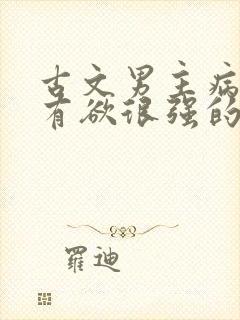 古文男主病
有欲很强的
羅迪